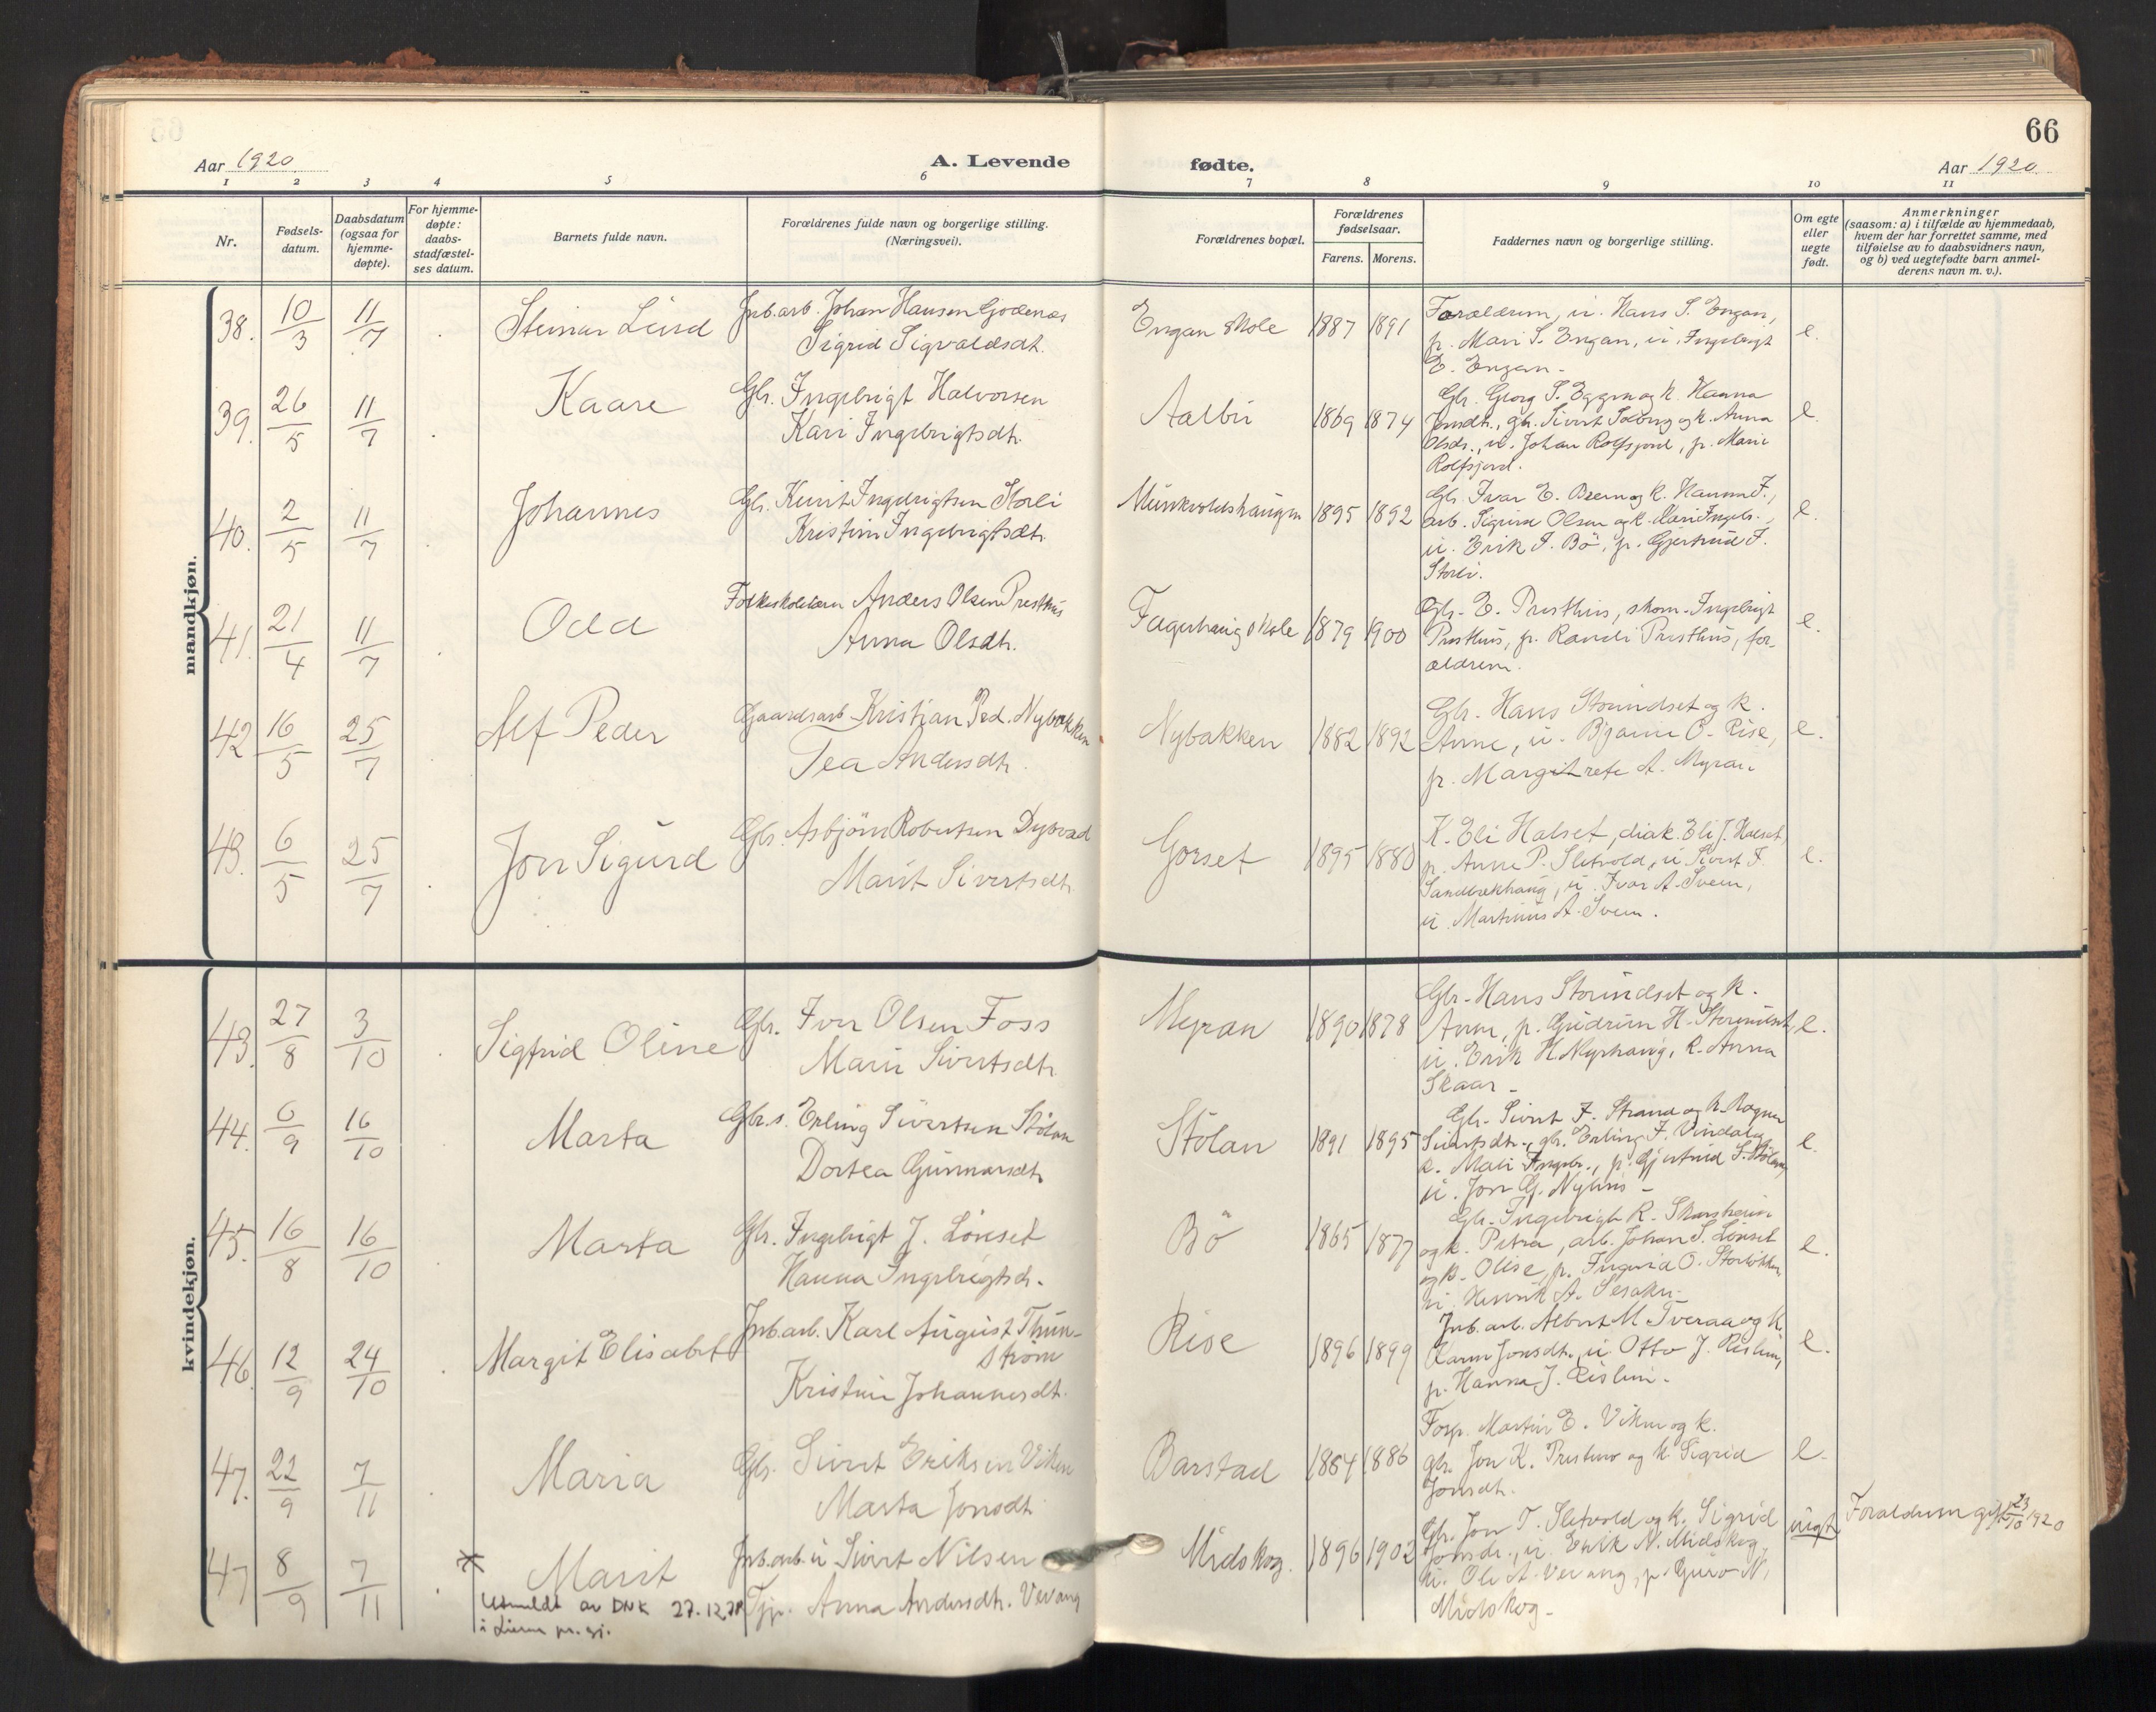 66
Aar 1920
A. Levende
fødte.
Aar 1920
1 2 3 4 5 6 7 8 9 10 11
Nr.
Fødsels-
datum.
Daabsdatum
(ogsaa for
hjemme-
døpte).
For hjemme-
døpte:
daabs-
stadfæstel-
ses datum.
Barnets fulde navn.
Forældrenes fulde navn og borgerlige stilling.
(Næringsvei).
Forældrenes bopæl.
Forældrenes
fødselsaar.
Farens. Morens.
Faddernes navn og borgerlige stilling.
Om egte
eller
uegte
født.
Anmerkninger
(saasom: a) i tilfælde av hjemmedaab,
hvem der har forrettet samme, med
tilføielse av to daabsvidners navn,
og b) ved uegtefødte barn anmel-
derens navn m. v.).
mandkjøn.
38. 10/3 11/7 Steinar Leird
Jnb.arb. Johan Hansen Godenes
Sigrid Sigvaldsdt.
Engan skole 1887 1891
Forældrene, u. Hans S. Engan,
p. Mari S. Engan, u. Ingebrigt
E. Engan -
e.
39. 26/5 11/7 Kaare
Gbr. Ingebrigt Halvorsen
Kari Ingebrigtsdtr.
Aalbu 1869 1874
Gbr. Georg S. Eggen og k. Hanna
Jonsdtr., gbr. Sivert Solberg og k. Anna
Olsdr., u. Johan Rolfsjord, p. Marie
Rolfsjord.
e.
40. 2/5 11/7 Johannes
Gbr. Kunt Ingebrigtsen Storli
Kristine Ingebrigtsdtr.
Munkvoldshaugen 1895 1892
Gbr. Ivar E. Brem og k. Hanna I.,
arb. Sigurd Olsen og k. Mari Ingebr.,
u. Erik I. Bö, p. Gjertrud I.
Storli.
e.
41. 21/4 11/7 Odd
Folkeskolelærer Anders Olsen Presthus
Anna Olsdtr.
Fagerhaug skole 1879 1900
Gbr. E. Presthus, skom. Ingebrigt
Presthus, p. Randi Presthus, for-
ældrene.
e.
42 16/5 25/7 Alf Peder
Gaardsarb. Kristian Ped. Nybakken
Tea Andersdtr.
Nybakken 1882 1892
Gbr. Hans Storindset og k.
Anne, u. Bjarne O. Rise,
p. Margitrete A. Myran
e.
43. 6/5 25/7 Jon Sigurd
Gbr. Asbjörn Robertsen Dysvad
Marit Sivertsdtr.
Gorset 1895 1880
K. Eli Halset, diak. Eli J. Halset,
p. Anne P. Sletvold, u. Sivert I.
Sandbækhaug, u. Ivar A. Sveen,
u. Martinus A. Sveen.
e.
kvindekjøn.
43. 27/8 3/10 Sigfrid Oline
Gbr. Iver Olsen Foss
Marie Sivertsdtr.
Myran 1890 1878
Gbr. Hans Storindset og k.
Anne, p. Gudrun H. Storindset,
u. Erik H. Nyhaug, k. Anna
Skaar -
e.
44. 6/9 16/10 Marta
Gbr.s. Erling Sivertsen Stölan
Dortea Gunnarsdtr.
Stölan 1891 1895
Gbr. Sivert F. Strand og k. Ragnen
Sivertsdtr., gbr. Erling F. Vindal og
k. Mali Ingebr., p. Gjertrud S. Stölan,
u. Jon G. Nyhus -
e.
45. 16/8 16/10 Marta
Gbr. Ingebrigt J. Lönset
Hanna Ingebrigtsd.
Bö 1865 1877
Gbr. Ingebrigt R. Skarsheim
og k. Petra, arb. Johan S. Lönset
og k. Olise, p. Ingrid O. Storlökken,
u. Henrik A.
e.
46. 12/9 24/10 Margit Elisabet
Jnb.arb. Karl August Thun-
strøm
Kristine Johannesdt.
Rise 1896 1899
Jnb. arb. Albert M. Tveraa og k.
Karen Jonsdt., u. Otto J. Rislien,
p. Hanna J. Rislien.
e.
47. 22/9 7/11 Maria
Gbr. Sivert Eriksen Viken
Marta Jonsdt.
Barstad 1884 1886
Forp. Martin E. Viken og k.
gbr. Jon K. Presthus og k. Sigrid
Jonsdt.
e.
47 8/9 7/11 Marit
Utmeldt av DNK 27.12.78
i Lierne pr. gj.
Jnb.arb. u. Sivert Nilsen
Tjp. Anna Andersdtr. Vevang
Midskog. 1896 1902
Gbr. Jon T. Sletvold og k. Sigrid
Jonsdr., u. Erik N. Midskog,
u. Ole A. Vevang, p. Guro N.
Midskog -
uegte
Forældrene gift 23/10 1920